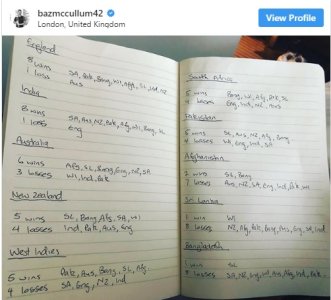 bazmccullum42
London, United Kingdom
View Profile
England
8 wins
SA, Pak, Bang, WI, Afg, SL, Ind, NZ
1 loss
Aus
India
8 wins
SA, Aus, NZ, Pak, Afg, WI, Bang, SL
1 losses
Eng
Australia
6 wins
Afg, SL, Bang, Eng, NZ, SA
3 losses
WI, Ind, Pak
New Zealand
5 wins
SL, Bang, Afg, SA, WI
4 losses
Ind, Pak, Aus, Eng
West Indies
5 wins
Pak, Aus, Bang, SL, Afg
4 losses
SA, Eng, NZ, Ind
South Africa
5 wins
Bang, WI, Afg, Pak, SL
4 losses
Eng, Ind, NZ, Aus
Pakistan
5 wins
SL, Aus, NZ, Afg, Bang
4 losses
WI, Eng, Ind, SA
Afghanistan
2 wins
SL, Bang
7 losses
Aus, NZ, SA, Eng, Ind, Pak, WI
Sri Lanka
1 win
WI
8 losses
NZ, Afg, Pak, Bang, Aus, Eng, SA, Ind
Bangladesh
1 win
SL
8 losses
SA, NZ, Eng, WI, Aus, Afg, Ind, Pak